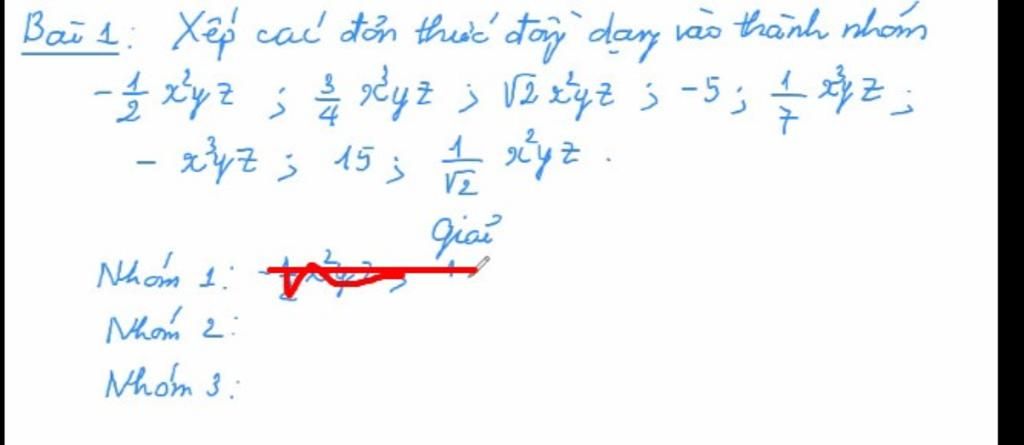 Bài 1: Xếp các đơn thức đồng dạng vào thành nhóm
-1/2 x²yz ; 3/4 x³yz ; √2 x²yz ; -5 ; 1/7 x³yz ;
- x³yz ; 15 ; 1/√2 x²yz .
Giải
Nhóm 1: -1/2 x²yz ;
Nhóm 2:
Nhóm 3: